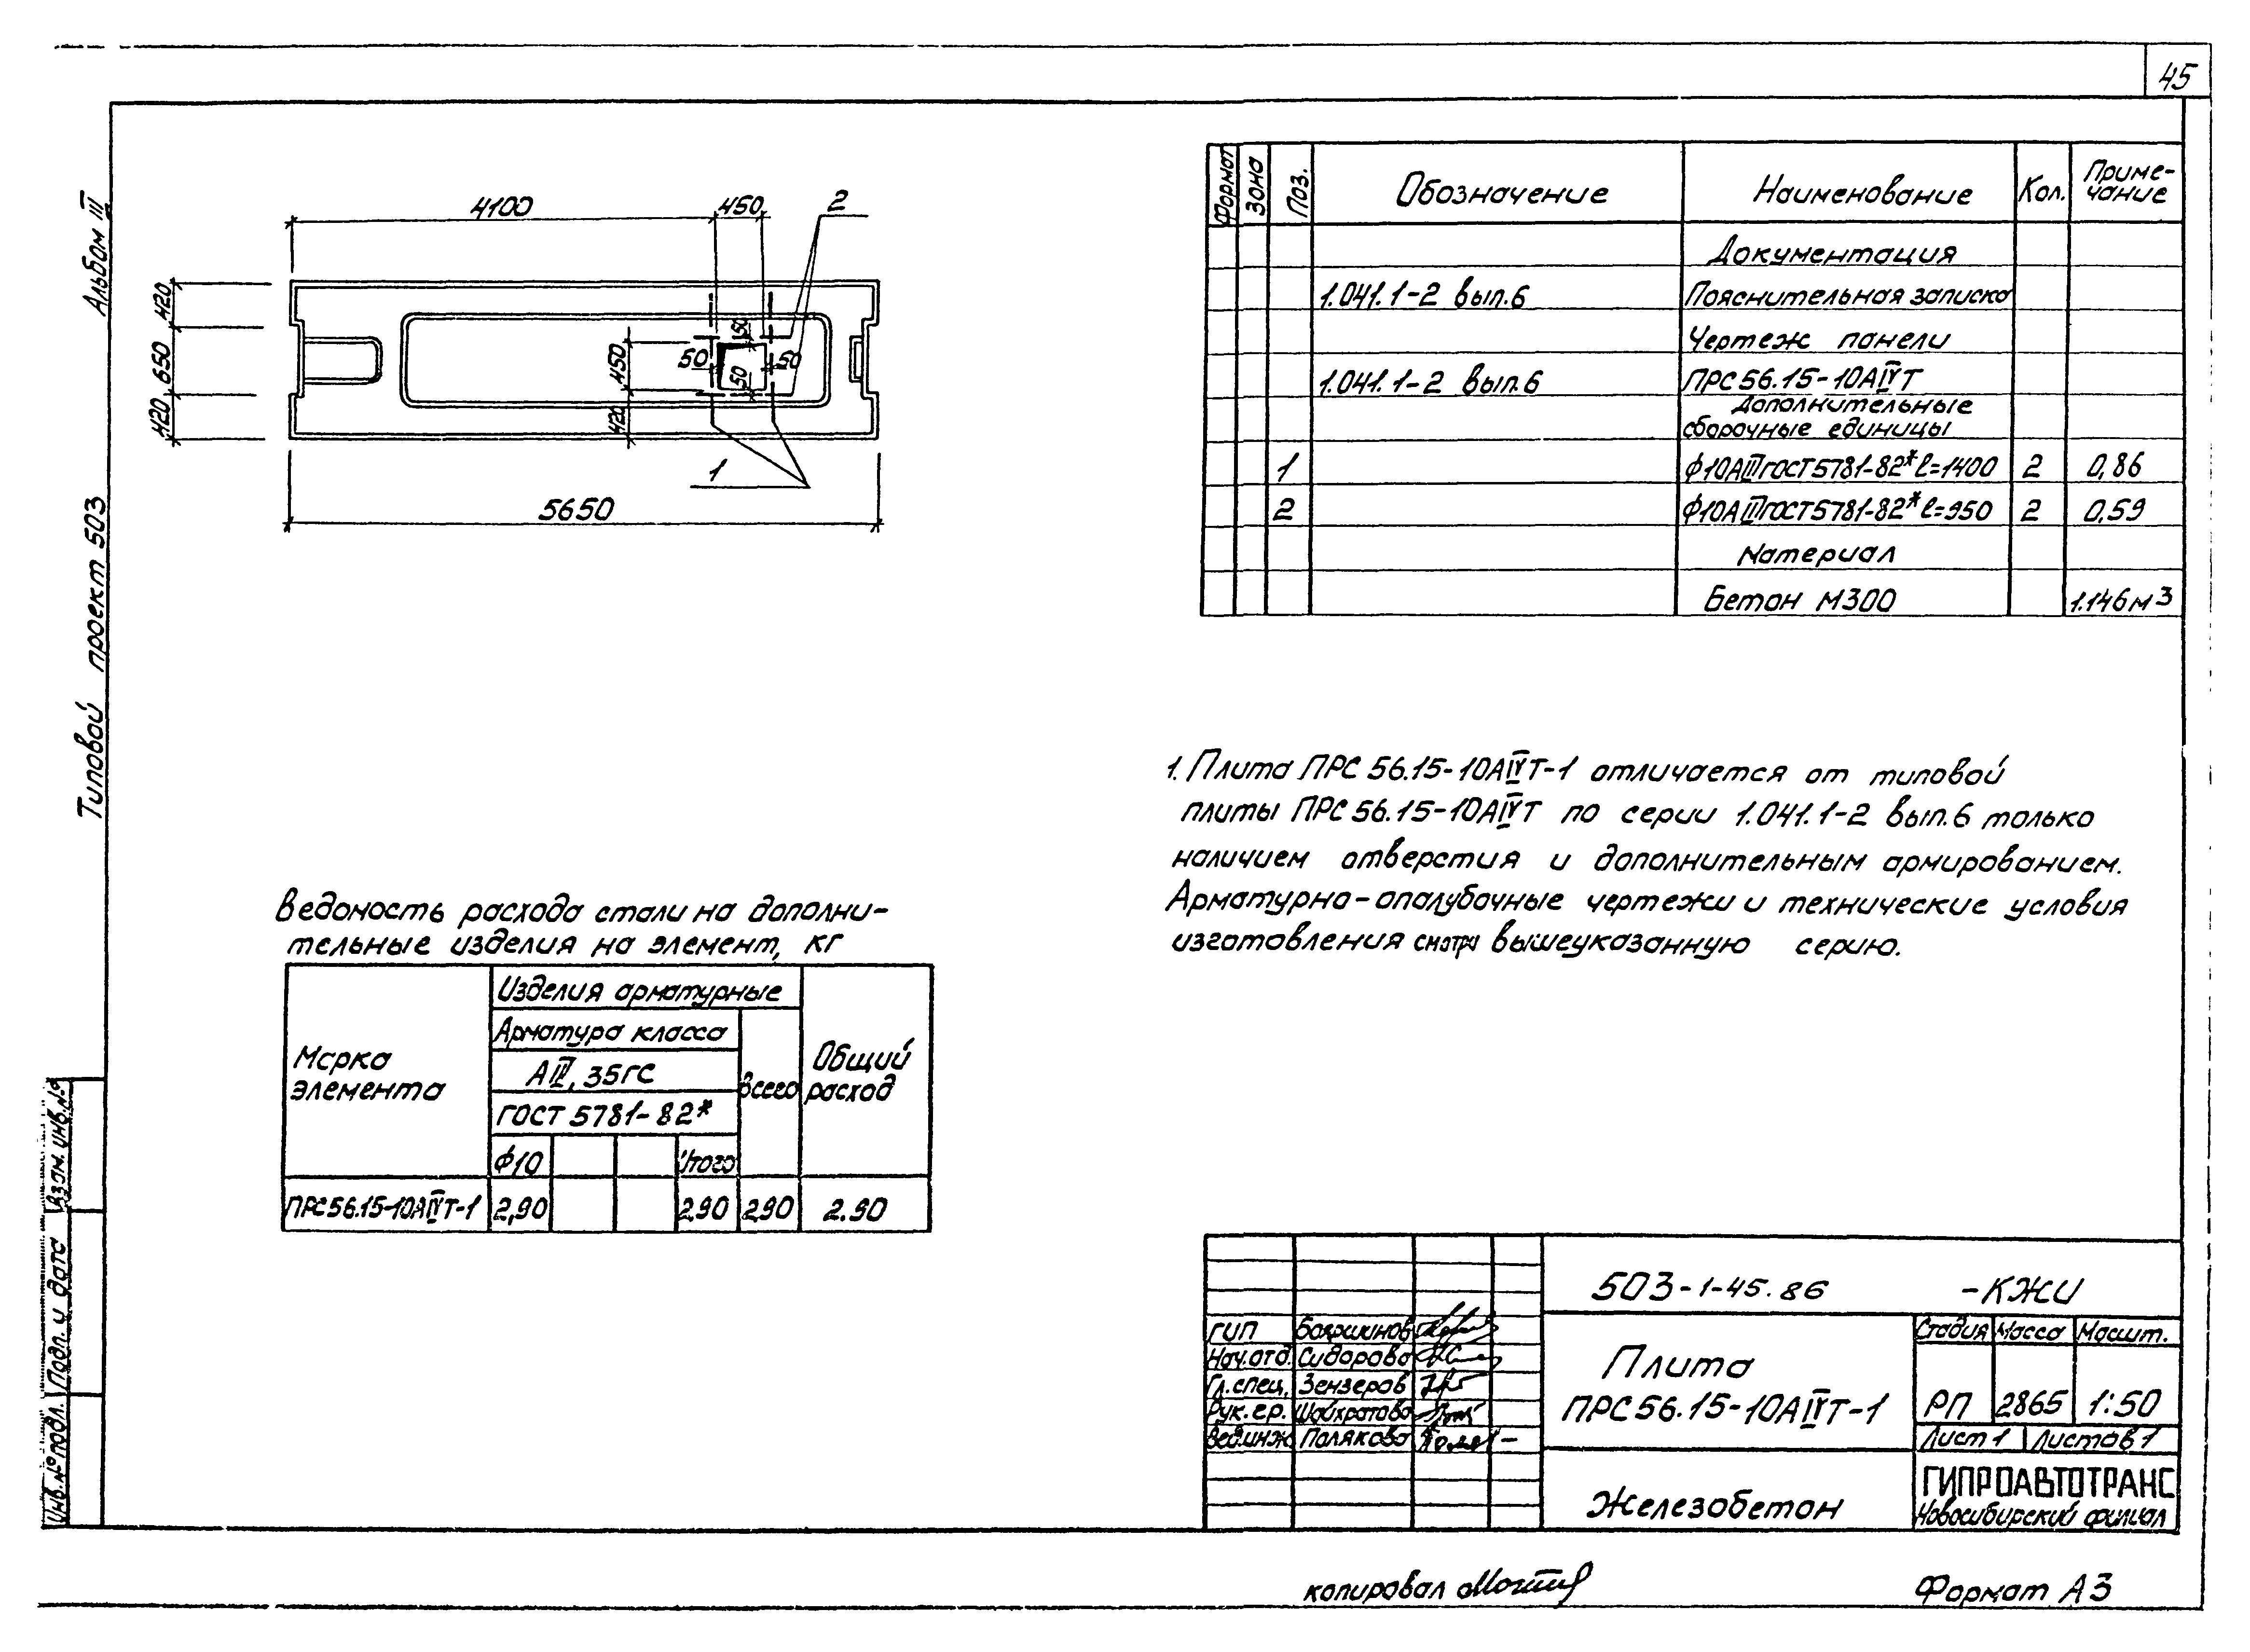 45
Альбом III
Типовой проект 503
4100
450
2
420
650
420
450
420
50
50
50
50
1
5650
Формат Зона Поз. Обозначение Наименование Кол. Приме-
чание
Документация
1.041.1-2 вып.6 Пояснительная записка
Чертеж панели
1.041.1-2 вып.6 ПРС56.15-10АIVТ
Дополнительные
сборочные единицы
1 ф10АIII ГОСТ5781-82* ℓ=1400 2 0,86
2 ф10АIII ГОСТ5781-82* ℓ=950 2 0,59
Материал
Бетон М300 1.146м3
1. Плита ПРС 56.15-10АIVТ-1 отличается от типовой
плиты ПРС 56.15-10АIVТ по серии 1.041.1-2 вып.6 только
наличием отверстия и дополнительным армированием.
Арматурно-опалубочные чертежи и технические условия
изготовления смотри вышеуказанную серию.
Ведомость расхода стали на дополни-
тельные изделия на элемент, кг
Марка
элемента
Изделия арматурные
Арматура класса
АIII, 35ГС
ГОСТ 5781-82*
ф10 Итого
Всего
Общий
расход
ПРС56.15-10АIVТ-1 2,90 2,90 2,90 2.90
503-1-45.86 -КЖИ
ГИП Бояршинов
Нач.отд. Сидорова
Гл.спец. Зензеров
Рук.гр. Шайхратова
Вед.инж Полякова
Плита
ПРС56.15-10АIVТ-1
Стадия Масса Масшт.
РП 2865 1:50
Лист 1 Листов 1
Железобетон
ГИПРОАВТОТРАНС
Новосибирский филиал
Инв.№подл. Подп. и дата Взам. инв.№
копировал
Формат А3